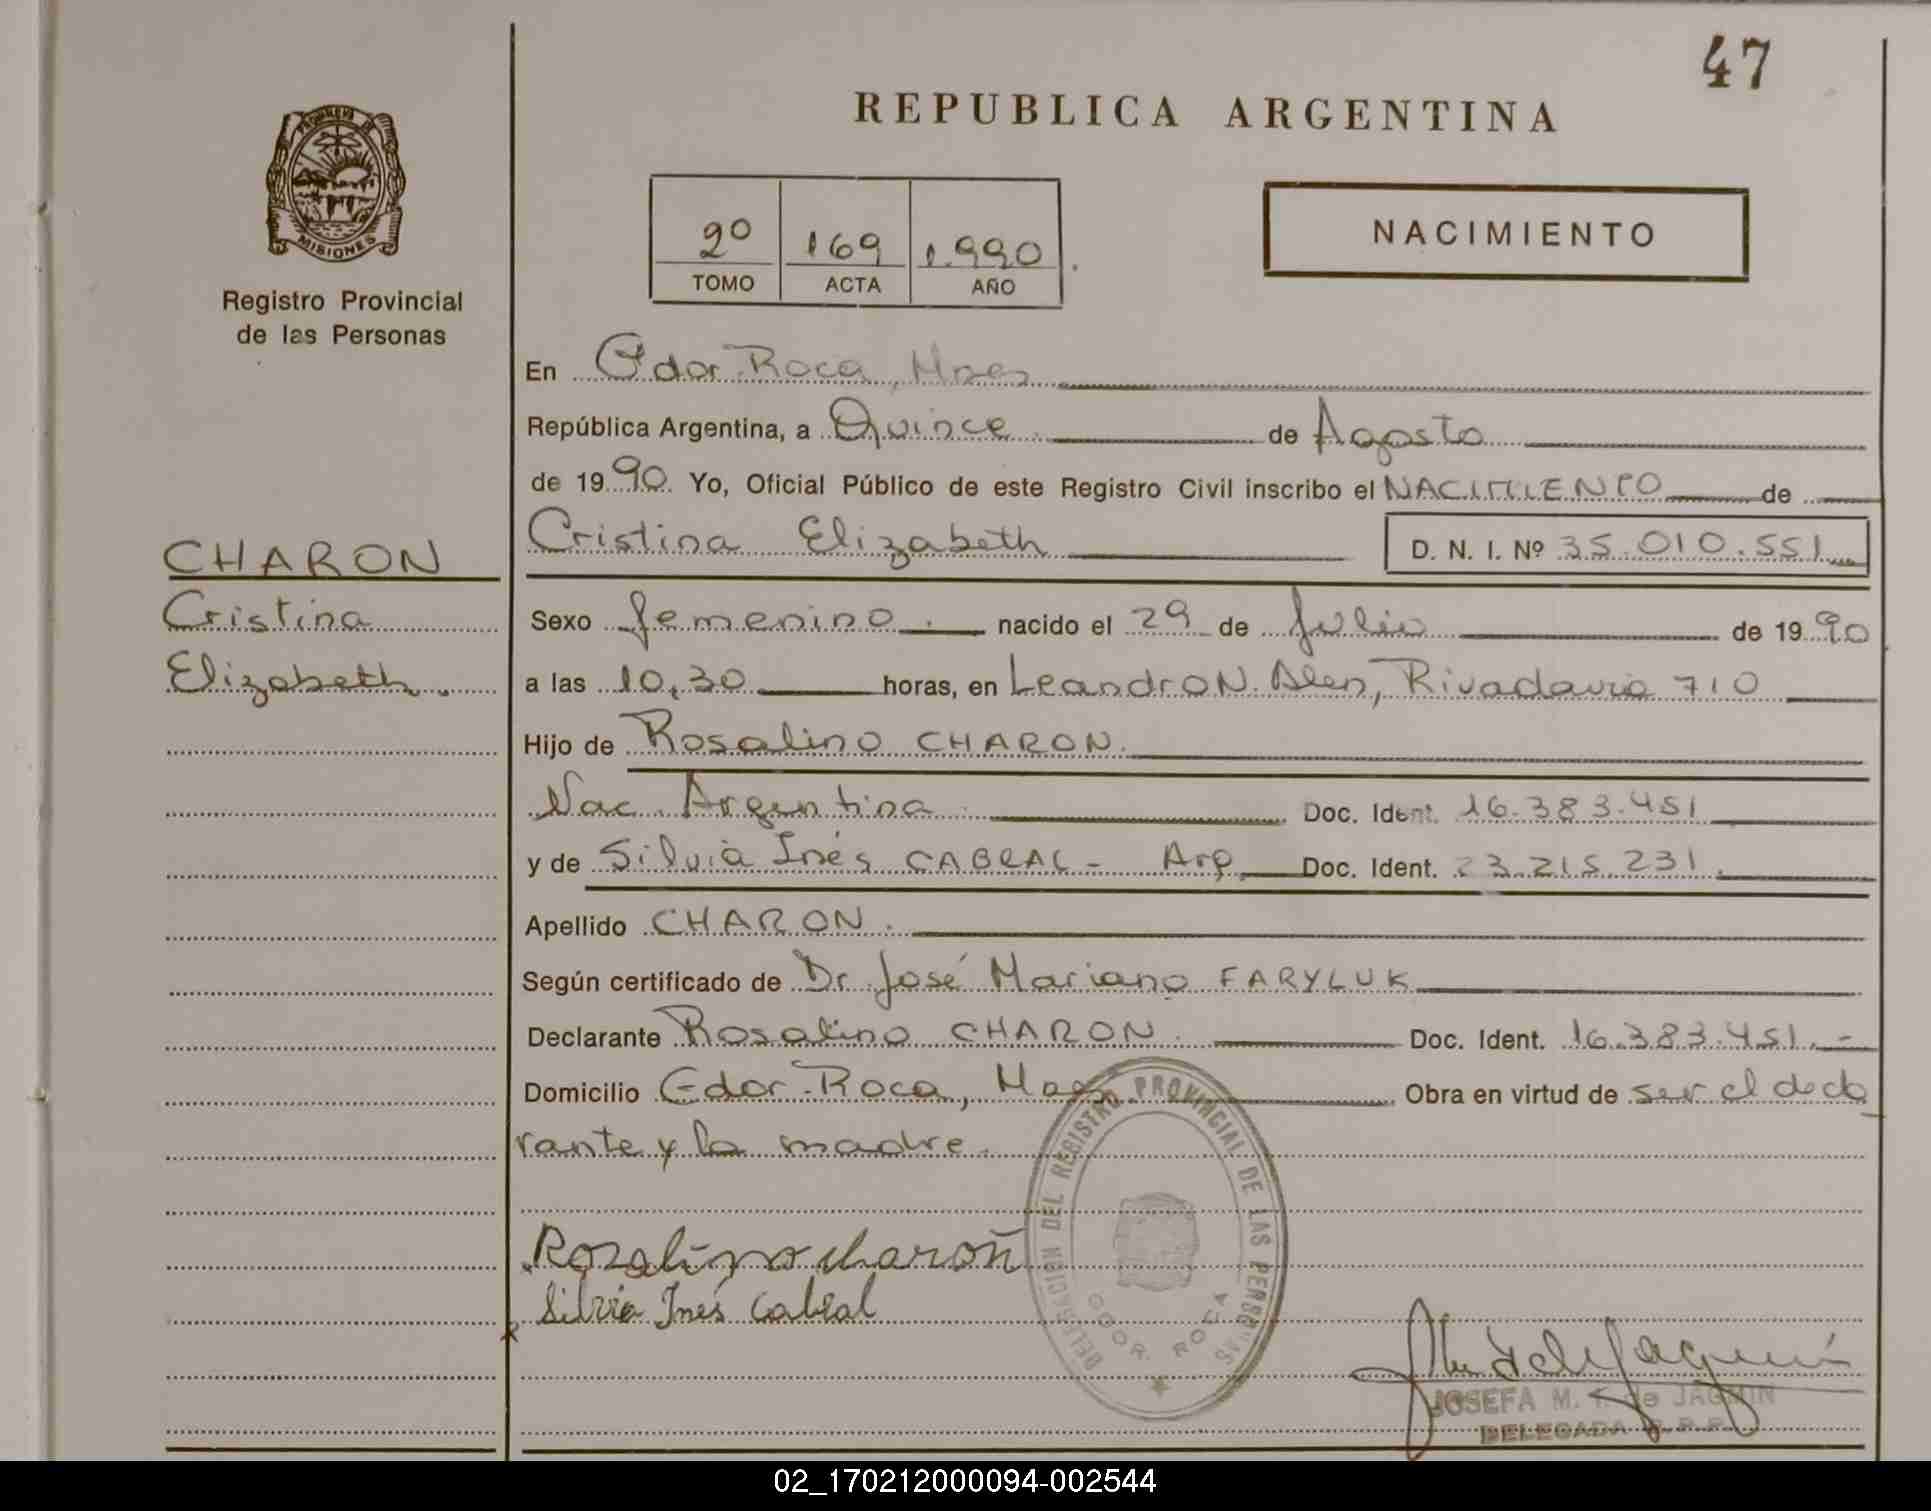 47
REPUBLICA ARGENTINA
PROVINCIA DE
MISIONES
Registro Provincial
de las Personas
2º 169 1.990
TOMO ACTA AÑO
NACIMIENTO
En Gdor. Roca, Mnes
República Argentina, a Quince de Agosto
de 1990 Yo, Oficial Público de este Registro Civil inscribo el NACIMIENTO de
Cristina Elizabeth D. N. I. Nº 35.010.551
CHARON
Cristina
Elizabeth.
Sexo femenino. nacido el 29 de Julio de 1990
a las 10,30 horas, en Leandro N. Alen, Rivadavia 710
Hijo de Rosalino CHARON.
Nac. Argentina. Doc. Ident. 16.383.451
y de Silvia Inés CABRAL - Arg. Doc. Ident. 23.215.231
Apellido CHARON.
Según certificado de Dr José Mariano FARYLUK
Declarante Rosalino CHARON. Doc. Ident. 16.383.451.-
Domicilio Gdor. Roca, Obra en virtud de ser el decla
rante y la madre.
Rozalino charoñ
Silvia Inés Cabral
DELEGACION DEL REGISTRO PROVINCIAL DE LAS PERSONAS
GDOR. ROCA
JOSEFA M. de JAGMIN
DELEGADA R.P.P.
02_170212000094-002544